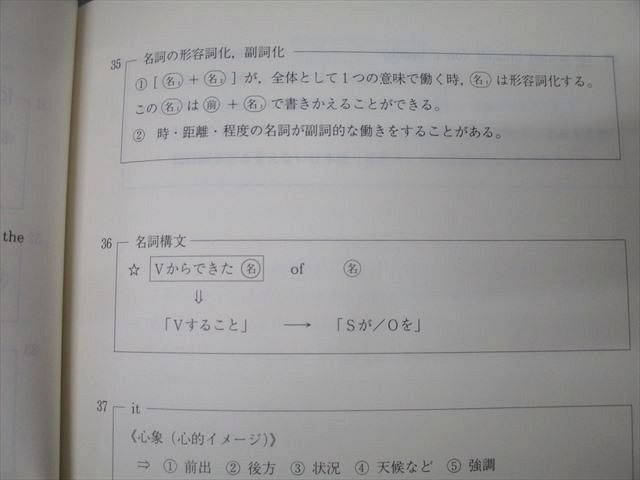 the
35 名詞の形容詞化，副詞化
① [ 名1 + 名2 ] が，全体として１つの意味で働く時，名1 は形容詞化する。
この 名1 は 前 + 名1 で書きかえることができる。
② 時・距離・程度の名詞が副詞的な働きをすることがある。
36 名詞構文
☆ Ｖからできた 名 of 名
⇓
「Ｖすること」 → 「Ｓが／Ｏを」
37 it
《心象（心的イメージ）》
⇒ ① 前出 ② 後方 ③ 状況 ④ 天候など ⑤ 強調